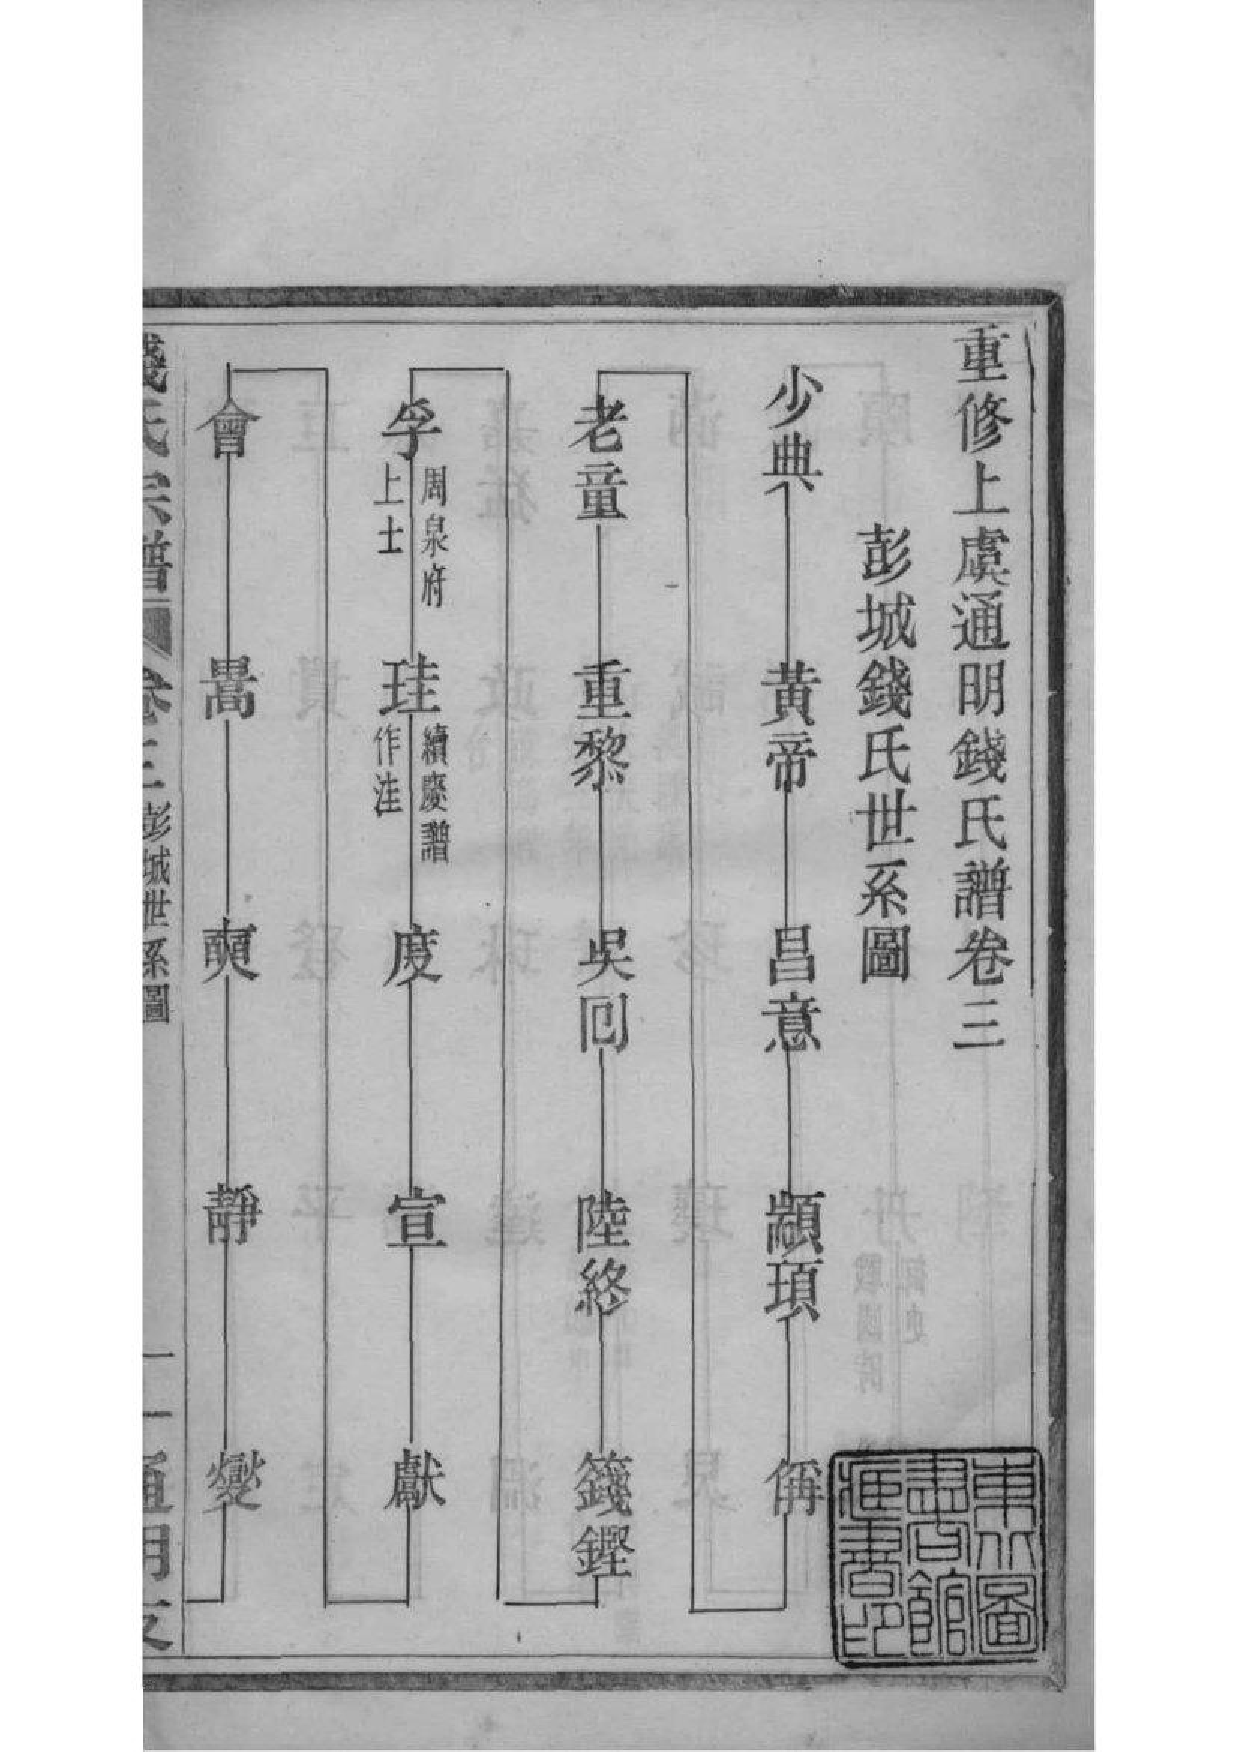 重修上虞通明錢氏譜卷三
彭城錢氏世系圖
少典 黃帝 昌意 顓頊 偁
老童 重黎 吳囘 陸終 籛鏗
孚 周泉府上士 珪 續慶譜作洼 度 宣 獻
會 暠 奭 靜 燮
錢氏宗譜 卷三 彭城世系圖 一 通明支
東北圖
書館
㽵書印